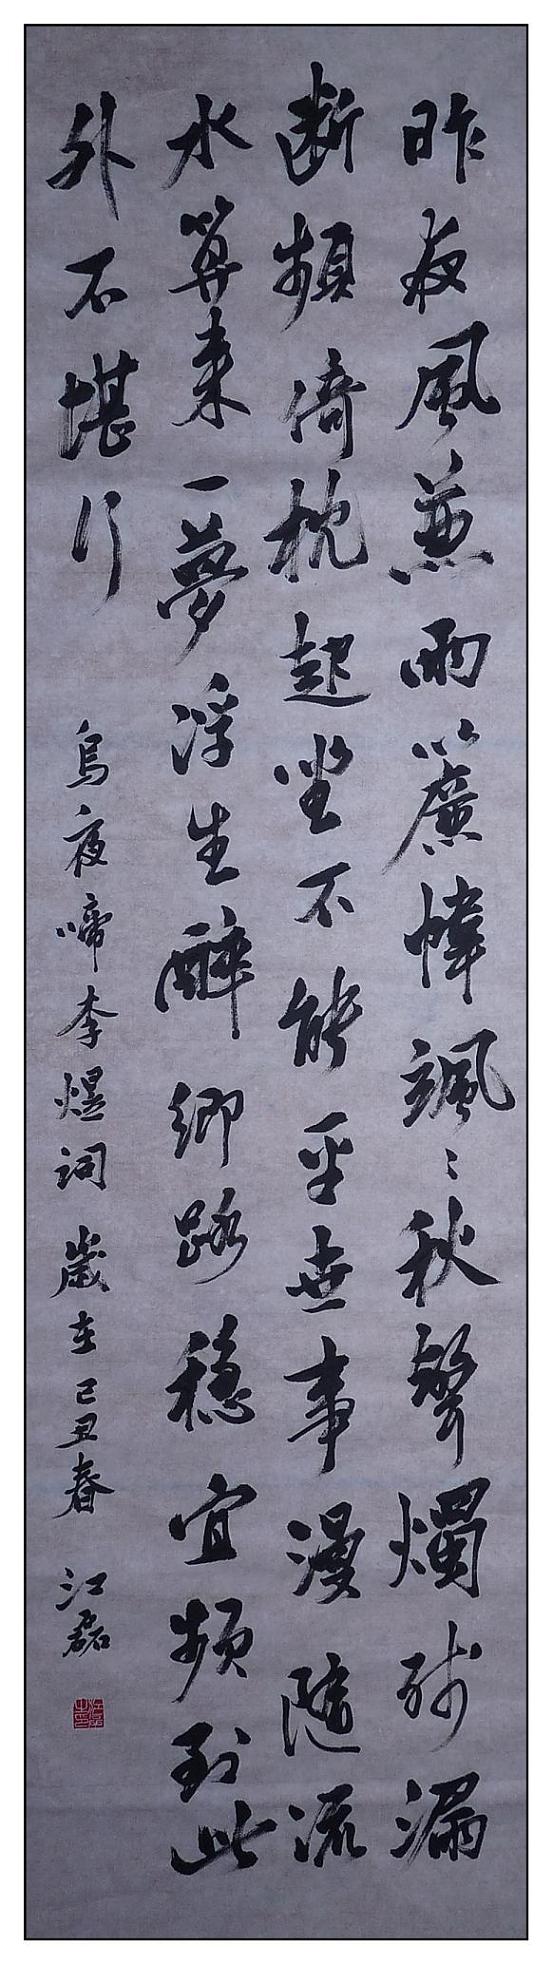 昨夜風兼雨簾幃颯〻秋聲燭殘漏
断頻倚枕起坐不能平世事漫随流
水算来一夢浮生醉鄉路穩宜頻到此
外不堪行
烏夜啼李煜词 歲在己丑春 江磊